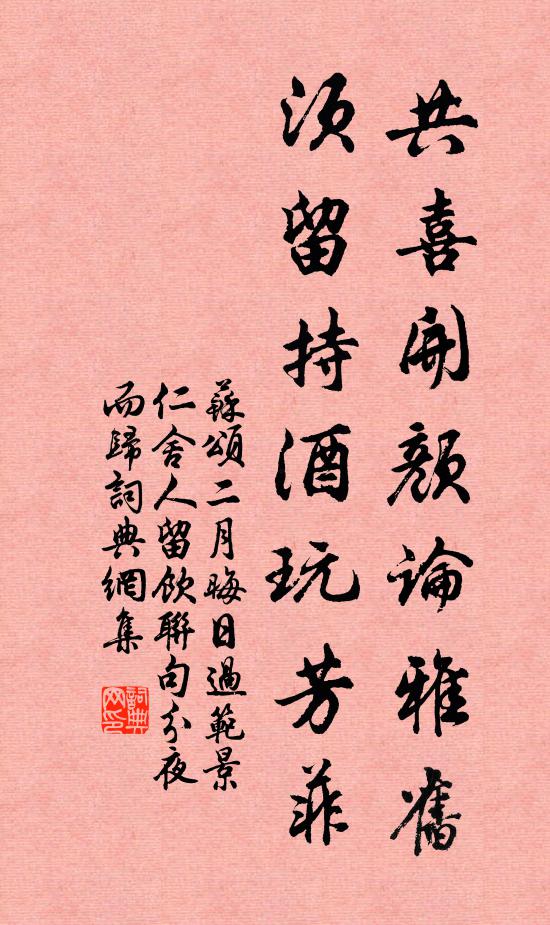 共喜開顏論雅舊
須留持酒玩芳菲
蘇頌二月晦日過範景
仁舍人留飲聯句分夜
而歸詞典網集
詞典網印